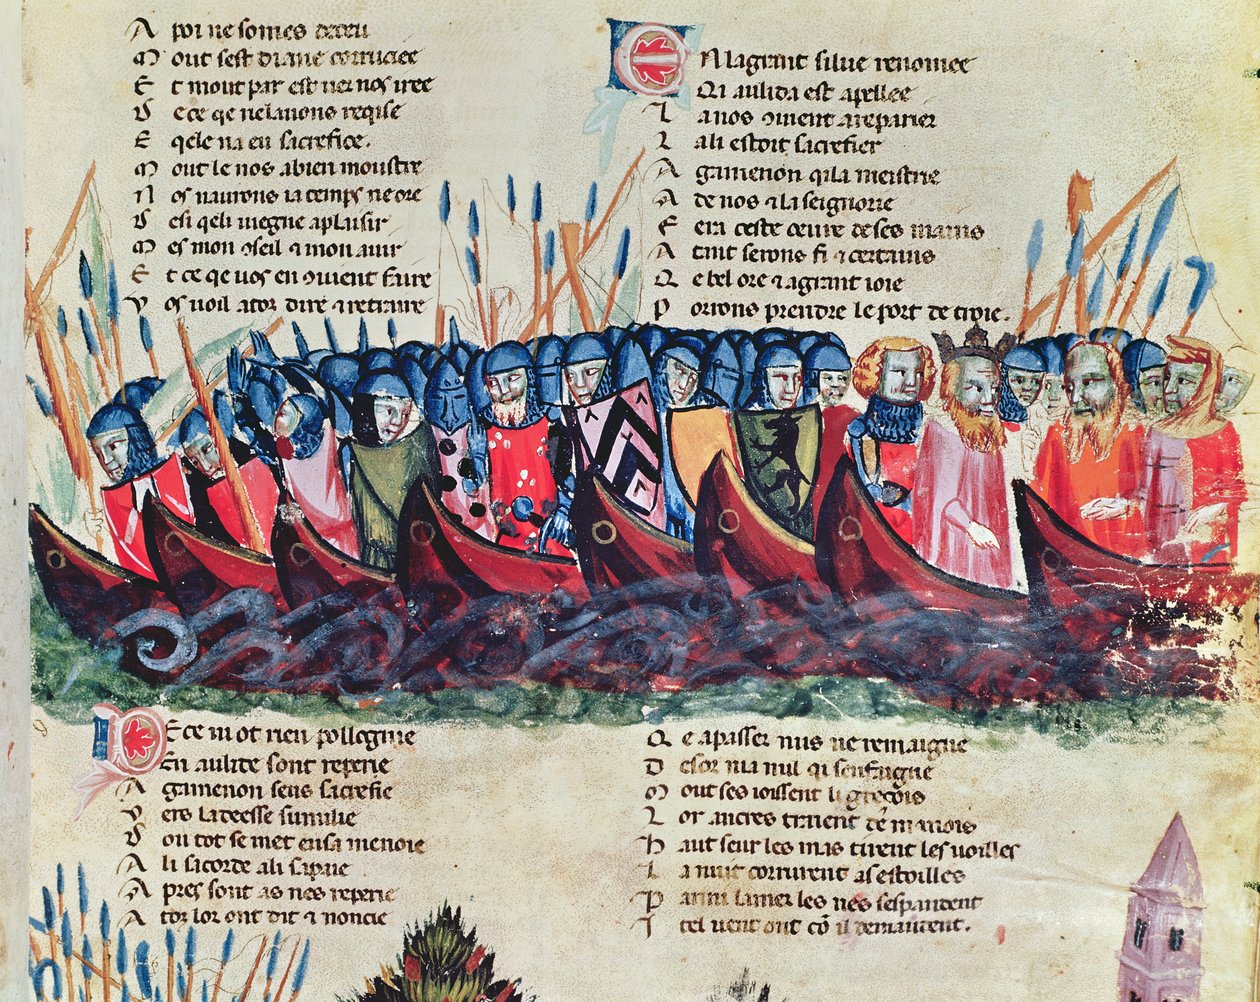 A poi ne somes deceu
M out sest diane corruciee
E t mout par est uer nos iree
D e ce qe nelauons reqise
E qele na eu sacrefice.
M out le nos a bien moustre
N os naurons ia temps ne ore
D esi qeli uiegne a plaisir
M es mon 9seil 7 mon auir
E t ce qe uos en 9uient faire
V os uoil ator dire 7 retraire
E N la grant silue renomee
Qi aulida est apellee
L a nos 9uient areparier
L ali estoit sacrefier
A gamenon qi la meistrie
A de nos 7 la seignorie
F era ceste oeure de ses mains
A tant serons fi 7 certains
Q e bel ore 7 a grant ioie
P orrons prendre le port de troie.
D E ce mot rien pollegnie
En aulide sont reperie
A gamenon sens sacrefie
V ers la deesse sumilie
D ou tot se met en sa menoie
A li sacorde a li sapaie
A pres sont as nes reperie
A toz lor ont dit 7 noncie
Q e apasser nus ne remaigne
D esor nia nul qi senfaigne
M out ses ioissent li grecois
L or ancres traient
H aut seur les mas tirent les uoilles
L a nuit corrurent as estoilles
P armi la mer les nes sespandent
I tel uent ont com il demandent.